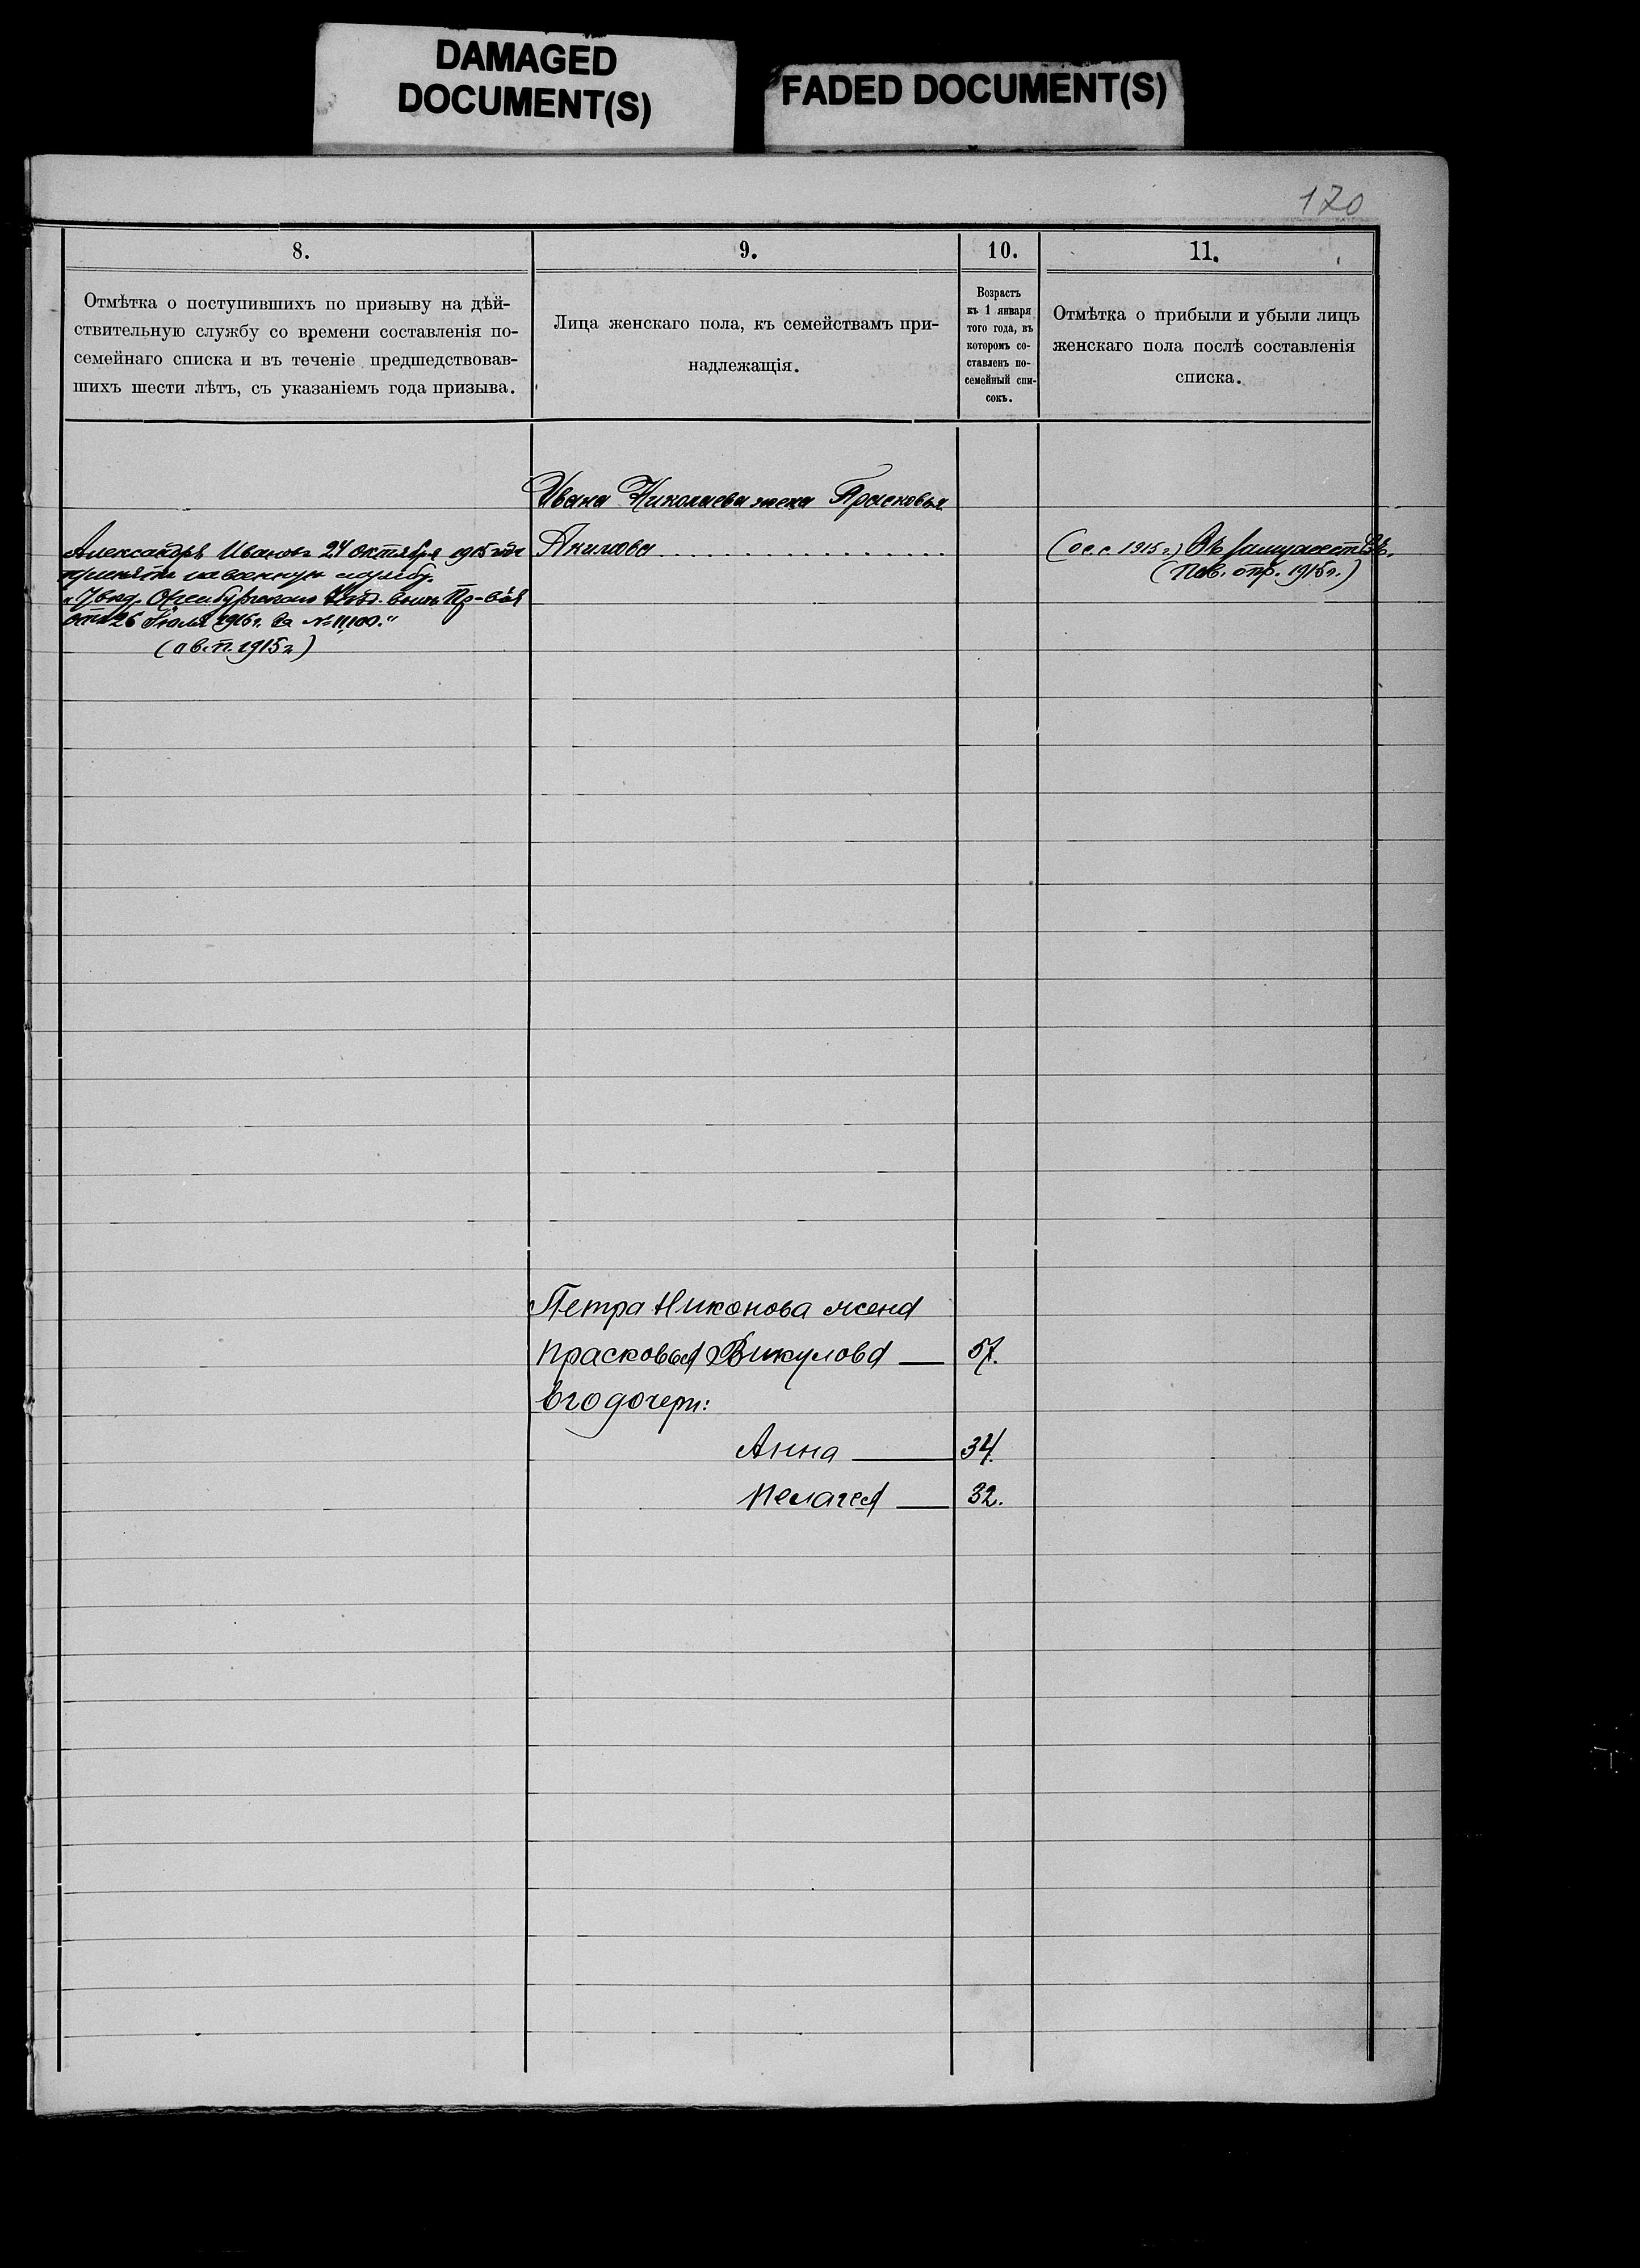 DAMAGED
DOCUMENT(S)
FADED DOCUMENT(S)
170
8.
Отмѣтка о поступившихъ по призыву на дѣй-
ствительную службу со времени составленія по-
семейнаго списка и въ теченіе предшедствовав-
шихъ шести лѣтъ, съ указаніемъ года призыва.
9.
Лица женскаго пола, къ семействамъ при-
надлежащія.
10.
Возрастъ
къ 1 января
того года, въ
которомъ со-
ставленъ по-
семейный спи-
сокъ.
11.
Отмѣтка о прибыли и убыли лицъ
женскаго пола послѣ составленія
списка.
Ивана Николаева жена Прасковья
Акилова
Александръ Ивановъ 24 октября 1915 года
принятъ на военную службу.
Оренбургскаго
от 26 Іюля 1916 г. за № 11,100."
1915 г)
1915 г.) Въ замужествѣ.
1915 г.)
Петра Никонова жена
Прасковья Викулова — 57.
Его дочери:
Анна — 34.
Пелагея — 32.